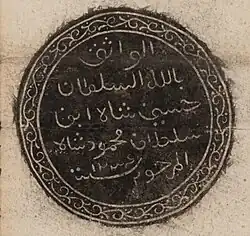 الواثق
بالله السلطان
حسين شاه ابن
سلطان محمود شاه
المرحوم سنة